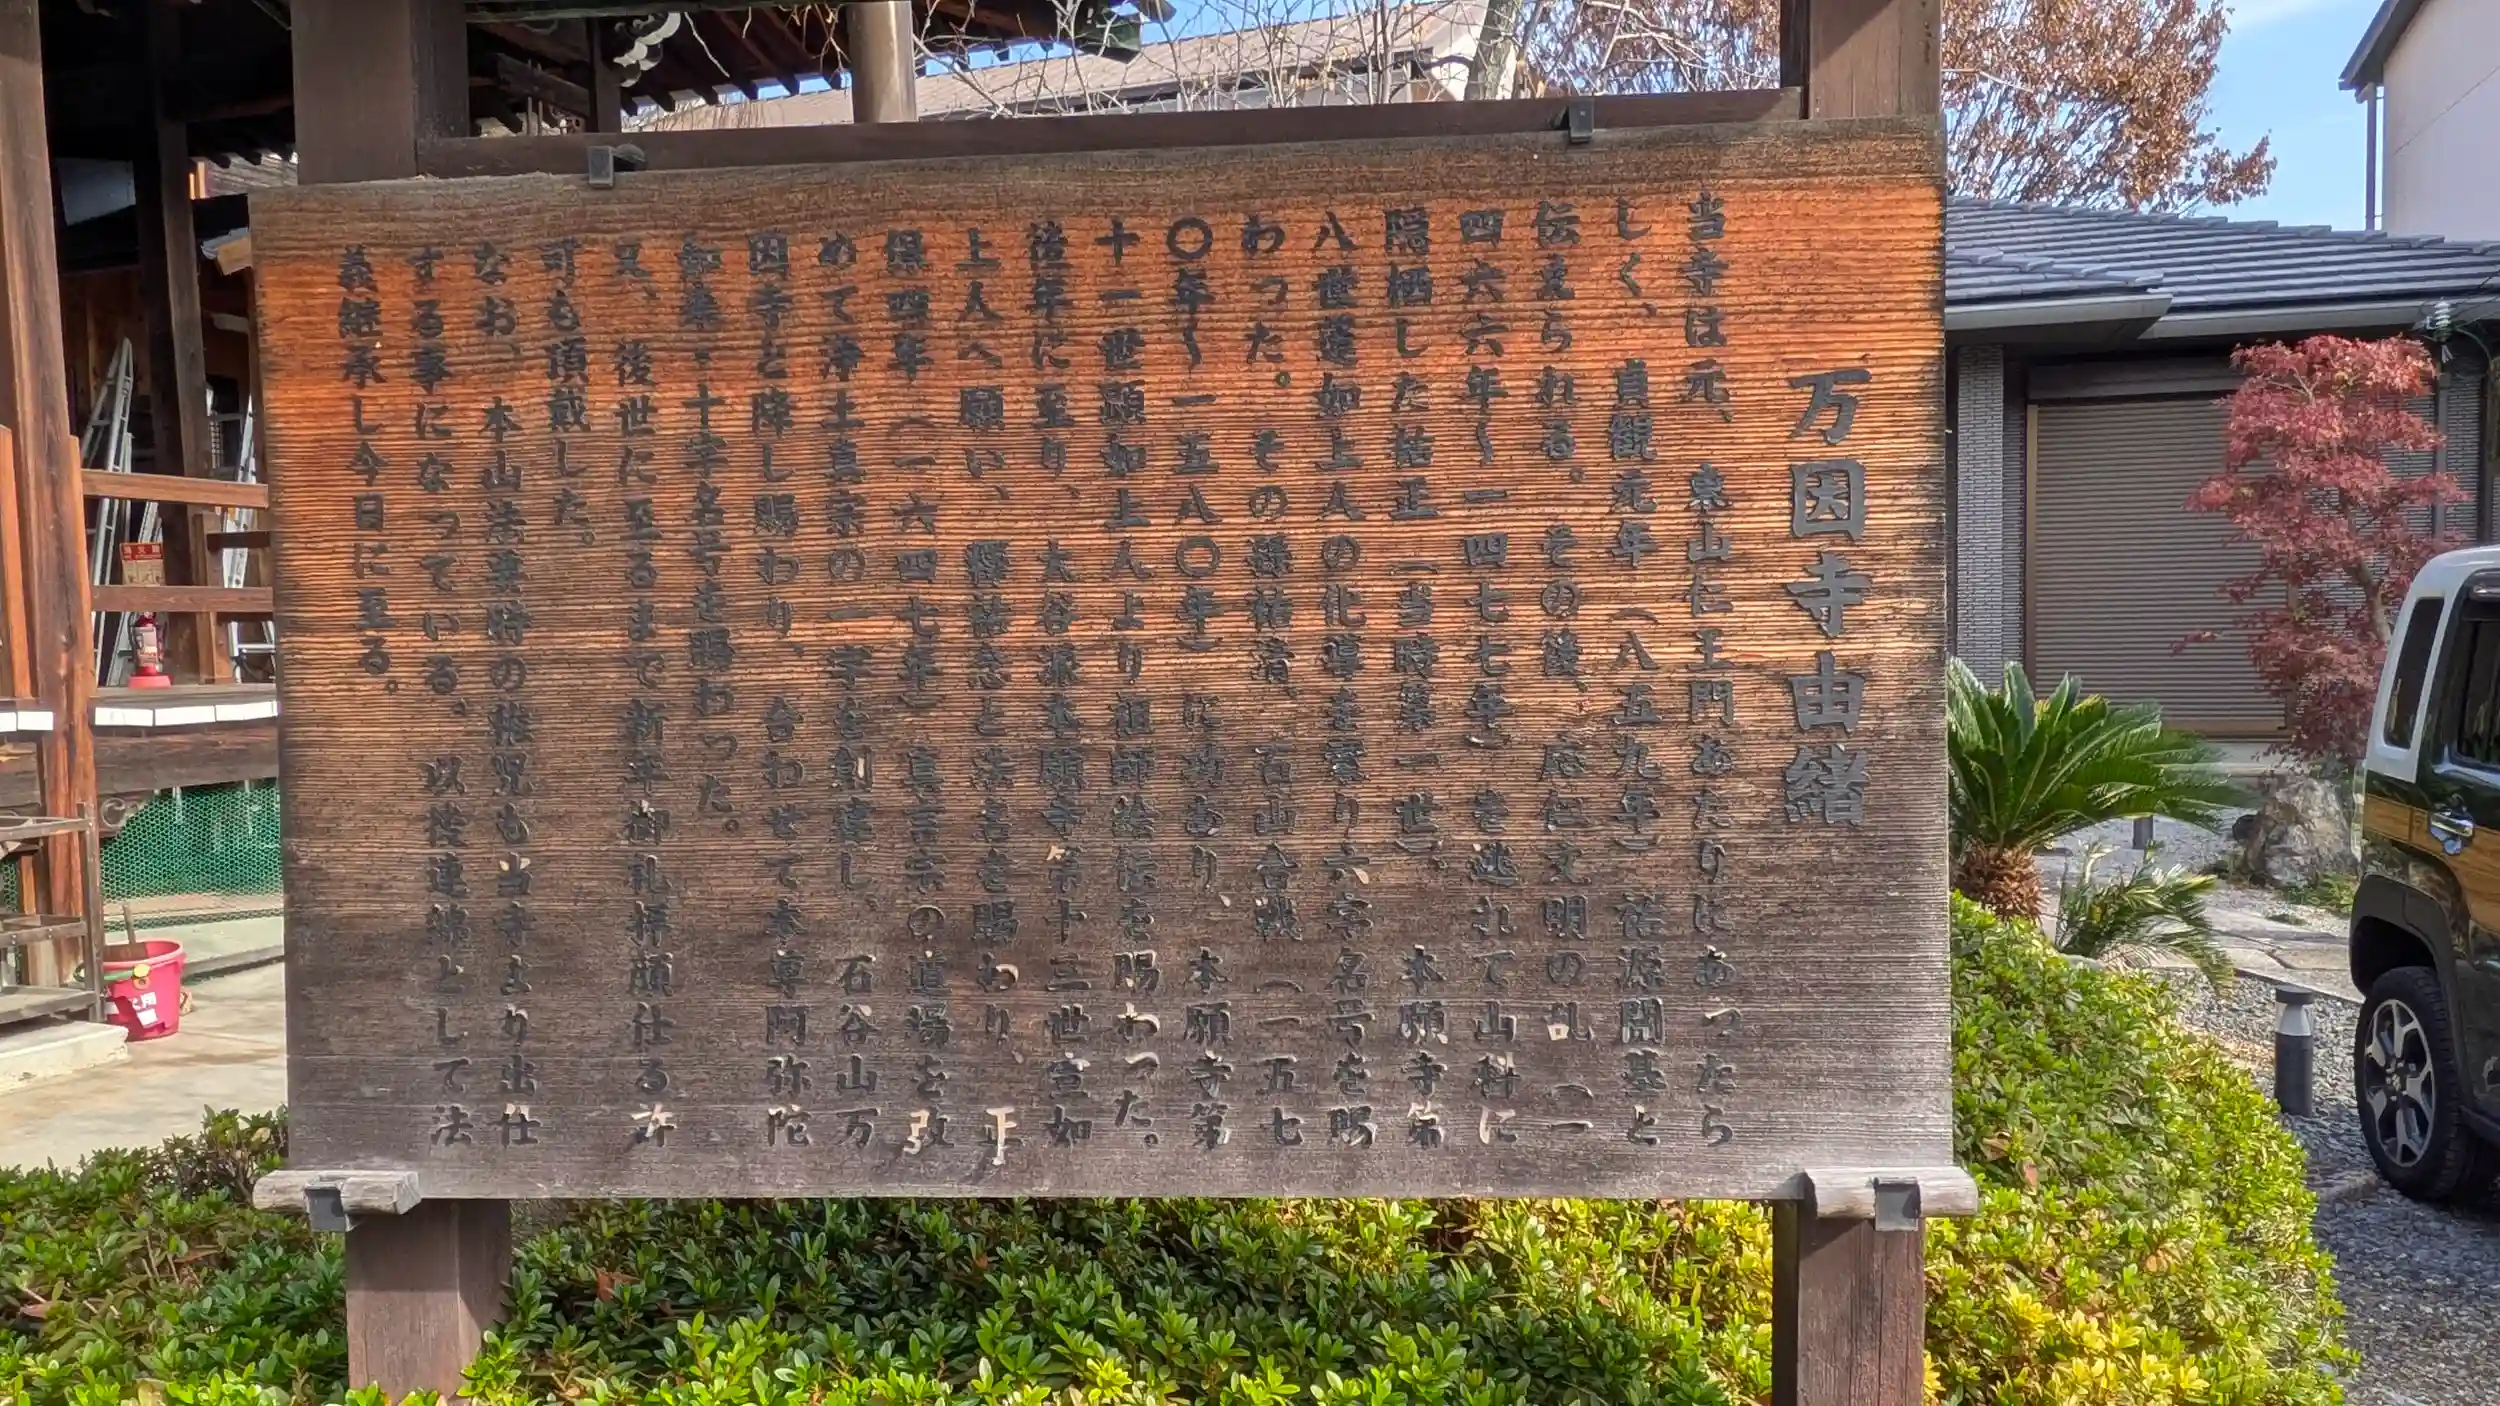 万因寺由緒
当寺は元、東山仁王門あたりにあったら
しく、貞観元年(八五九年)祐源開基と
伝えられる。その後、応仁文明の乱(一
四六六年〜一四七七年)を逃れて山科に
隠栖した祐正(当時第一世)、本願寺第
八世蓮如上人の化導を蒙り六字名号を賜
わった。その孫祐清、石山合戦(一五七
〇年〜一五八〇年)に功あり、本願寺第
十一世顕如上人より祖師絵伝を賜わった。
後年に至り、大谷派本願寺第十三世宣如
上人へ願い、釋祐念と法名を賜わり、正
保四年(一六四七年)真言宗の道場を改
めて浄土真宗の一宇を創建し、石谷山万
因寺と降し賜わり、合わせて本尊阿弥陀
如来・十字名号を賜わった。
又、後世に至るまで新年御礼拝顔仕る許
可も頂戴した。
なお、本山法要時の稚児も当寺より出仕
する事になっている。以後連綿として法
義継承し今日に至る。